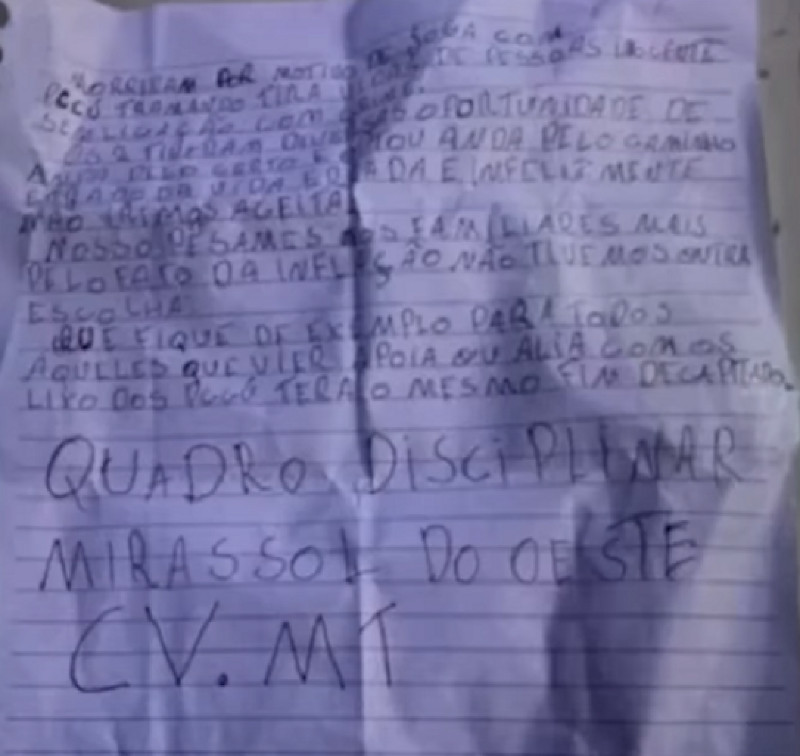 MORRERAM POR MOTIVO DE JOGA COM
PCCS TRAMANDO TIRA VIDAS DE PESSOAS INOCENTE
COM OPORTUNIDADE DE
OS 2 TIVERAM ANDA PELO CAMINHO
PELO CERTO E
DA VIDA ERRADA E INFELIZMENTE
NÃO IREMOS ACEITA
NOSSO PESAMES AOS FAMILIARES MAIS
PELO FATO DA INFLAÇÃO NÃO TIVEMOS OUTRA
ESCOLHA
QUE FIQUE DE EXEMPLO PARA TODOS
AQUELES QUE VIER APOIA OU ALIA COM OS
LIXO DOS PCCS TERA O MESMO FIM DECAPITADO.
QUADRO DISCIPLINAR
MIRASSOL DO OESTE
CV. MT